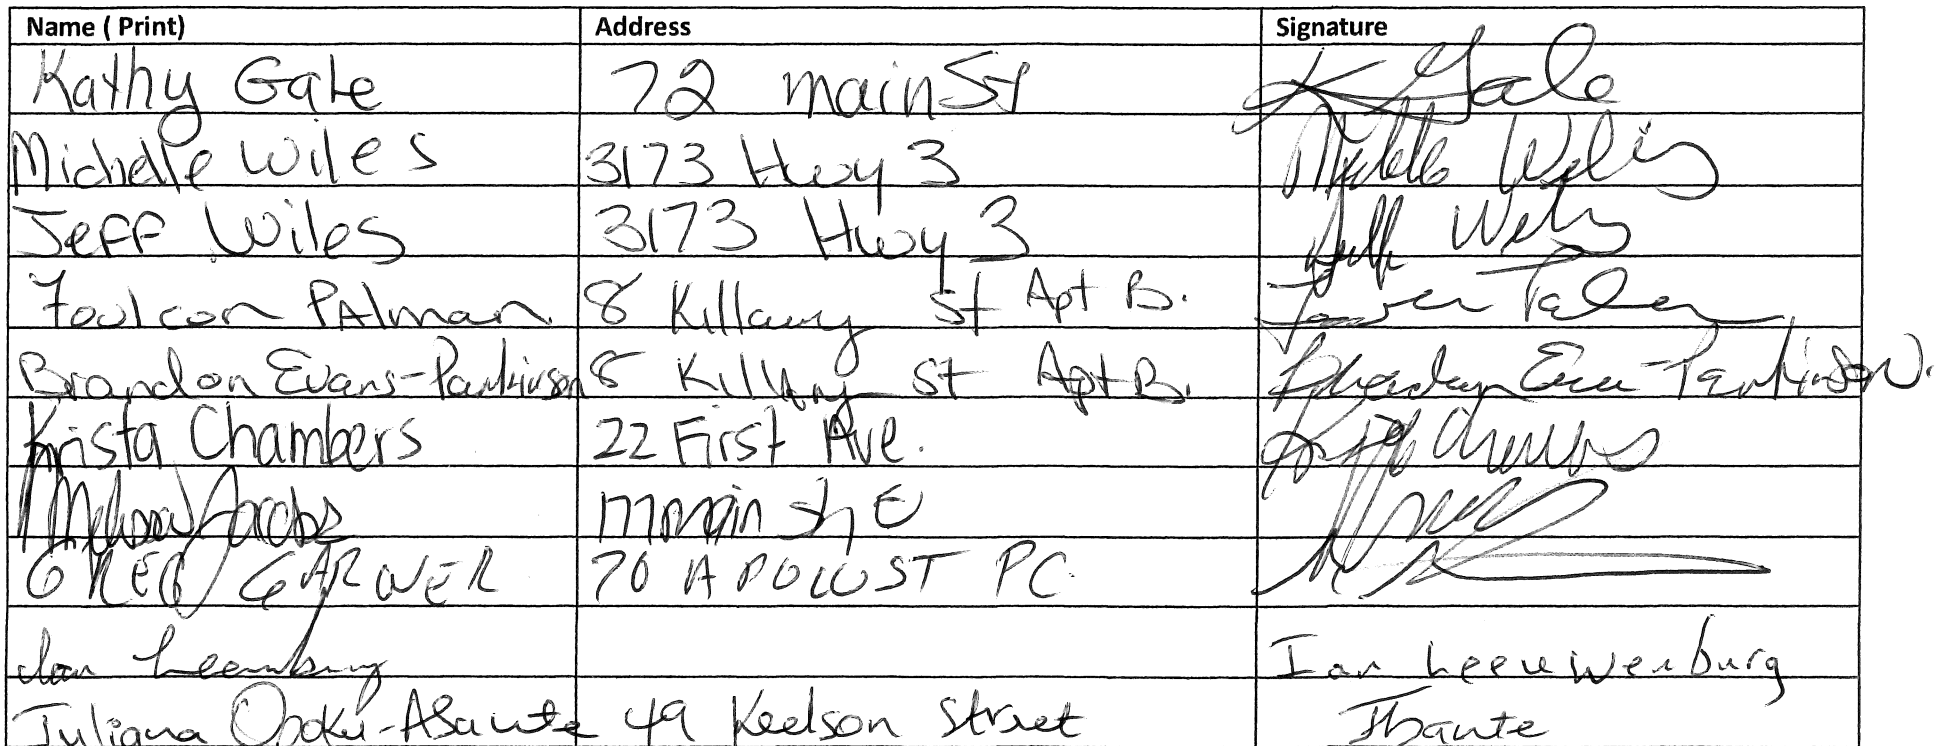 Name ( Print) Address Signature
Kathy Gale 72 main St K Gale
Michelle Wiles 3173 Hwy 3 Michelle Wiles
Jeff Wiles 3173 Hwy 3 Jeff Wiles
Foulcon PAlman 8 Killaly St Apt B.
Brandon Evans-Parkinson 8 Killaly St Apt B. Brandon Evans-Parkinson
Krista Chambers 22 First Ave. Chambers
Melissa Jacobs main E
GREG GARNER 70 ST PC
Ian Leeuwenburg
Juliana Opoku-Asante 49 Keelson Street